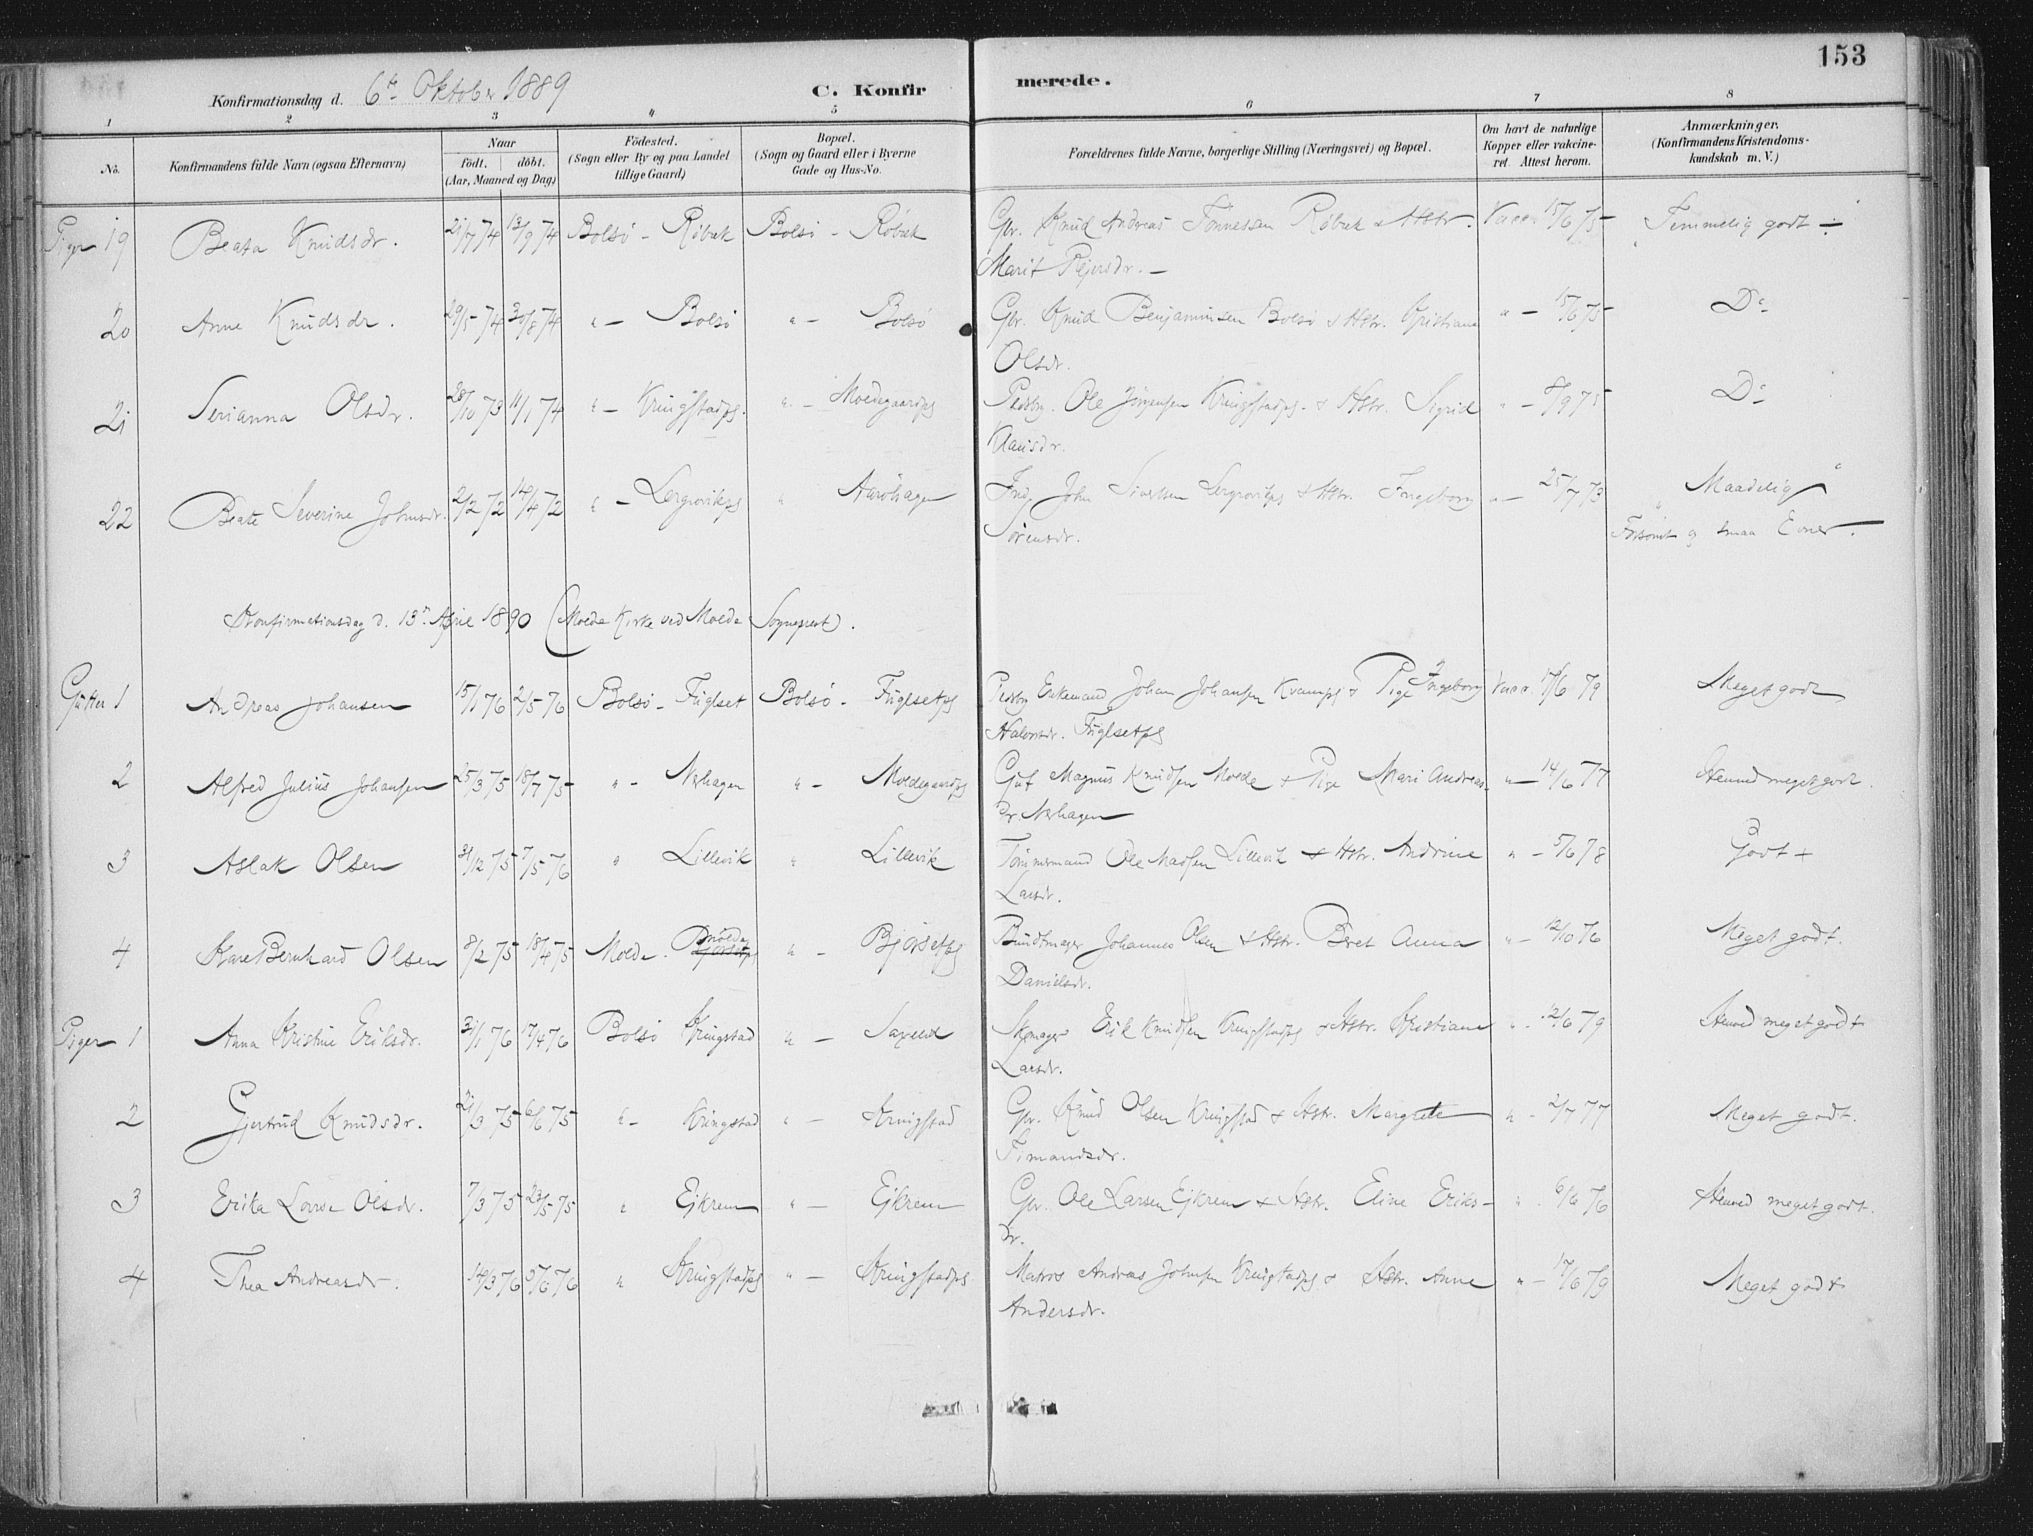 153
Konfirmationsdag d. 6te Oktober 1889 C. Konfirmerede.
1 2 3 4 5 6 7 8
No. Konfirmandens fulde Navn (ogsaa Efternavn) Naar födt. döbt. (Aar, Maaned og Dag) Födested. (Sogn eller By og paa Landet tillige Gaard) Bopæl. (Sogn og Gaard eller i Byerne Gade og Hus-No. Forældrenes fulde Navne, borgerlige Stilling (Næringsvei) og Bopæl. Om havt de naturlige Kopper eller vaccineret. Attest herom. Anmærkninger. (Konfirmandens Kristendomskundskab m. V.)
Piger 19 Beata Knudsdr. 21/7 74 13/9 74 Bolsö - Röbæk Bolsö - Röbæk Gbr. Knud Andreas Tönnessen Röbæk & Hstr. Vacc. 15/6 75 Temmelig godt ÷
Marit Pejersdr. -
20 Anne Knudsdr. 29/5 74 30/8 74 " - Bolsö " - Bolsö Gbr. Knud Benjaminsen Bolsö & Hstr. Kristiane " - 15/6 75 Do
Olsdr.
21 Serianna Olsdr. 28/10 73 11/1 74 " - Kringstadpl. " - Moldegaardpl Pladsbr. Ole Jörgensen Kringstadpl. & Hstr. Sigrid " - 8/9 75 Do
Klausdr.
22 Beate Severine Johnsdr. 2/2 72 14/4 72 " - Lergrovikpl " Aaröhagen Inds. John Sivertsen Lergrovikpl & Hstr. Ingeborg " - 25/7 73 Maadelig
Sörensdr. Forsömt og smaa Evner.
Konfirmationsdag d. 13de April 1890 (Molde Kirke ved Molde Sogneprest).
Gutter 1 Andreas Johansen 15/1 76 2/5 76 Bolsö - Fuglset Bolsö - Fuglsetpl Pladsbr Enkemand Johan Johansen Kvampl & Pige Ingeborg Vacc. 17/6 79 Meget godt
Halvorsdr. Fuglsetpl
2 Alfred Julius Johansen 25/3 75 18/7 75 " - Nerhagen " - Moldegaardpl Gut Magnus Knudsen Molde & Pige Mari Andreas- " - 14/6 77 Henved meget godt.
dr. Nerhagen
3 Aslak Olsen 31/12 75 7/5 76 " Lillevik " Lillevik Tömmermand Ole Madsen Lillevik & Hstr. Andrine " - 5/6 78 Godt +
Larsdr.
4 Kare Bernhard Olsen 8/2 75 18/4 75 Molde. Molde " - Bjørsetpl Buntmager Johannes Olsen & Hstr. Beret Anna " - 12/10 76 Meget godt.
Danielsdr.
Piger 1 Anna Kristine Eriksdr. 31/1 76 17/4 76 Bolsö Kringstad " - Skomager Erik Knudsen Kringstadpl & Hstr. Kristiane " - 12/6 79 Henved meget godt
Larsdr.
2 Gjertrud Knudsdr. 21/3 75 6/6 75 " - Kringstad " - Kringstad Gbr. Knud Olsen Kringstad & Hstr. Margrete " - 2/7 77 Meget godt.
Timandsdr.
3 Erika Lovise Olsdr. 7/3 75 23/5 75 " Ejkrem " - Ejkrem Gbr. Ole Larsen Ejkrem & Hstr. Eline Eriks- " - 6/6 76 Henved meget godt.
dr.
4 Thea Andreasdr. 14/3 76 5/6 76 " Kringstadpl " - Kringstadpl Matros Andreas Johnsen Kringstadpl & Hstr. Anne " - 17/6 79 Meget godt
Andersdr.